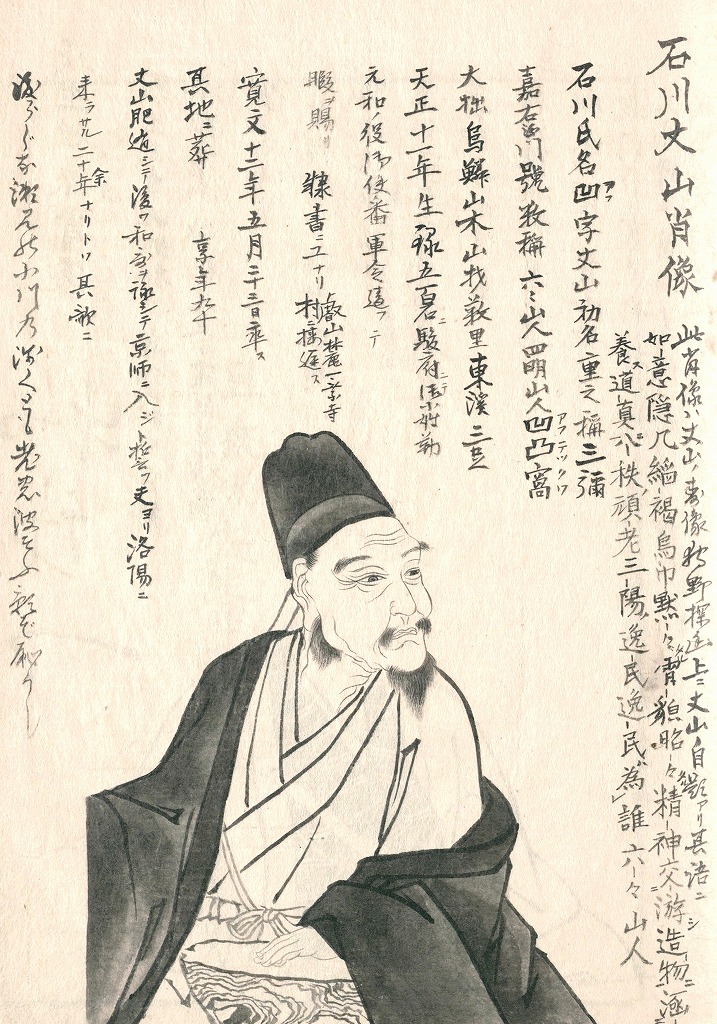 石川丈山肖像
此肖像ハ丈山ノ壽像狩野探幽上ニ丈山自題アリ其語ニ
如意隠几縕褐烏巾黙々貌昭々精神交游造物涵
養道真六秩頑老三陽逸民逸民為誰六々山人
石川氏名凹字丈山初名重之稱三彌
アフ
嘉右衛門號数稱六々山人四明山人凹凸窩
アフテツクワ
大拙烏鱗山木山材藪里東溪三足
天正十一年生禄五百石駿府ニテ御小姓勤
元和ノ役御使番軍令違フテ
暇ヲ賜リ 隸書ニ工ナリ 叡山麓一乗寺
村ニ棲遅ス
寛文十二年五月二十三日卒ス
其地ニ葬 享年九十
丈山肥遁シテ後ワ和歌ヲ詠シテ京師ニ入ジト誓フ丈ヨリ洛陽ニ
来ラサル二十余年ナリトソ其歌ニ
渡らしな瀬見の小川の浅くとも老の波そふ影も恥かし